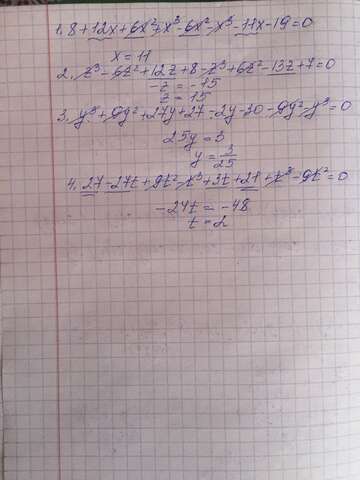 1. 8+12x+6x²+x³-6x²-x³-11x-19=0
x=11
2. z³-6z²+12z+8-z³+6z²-13z+7=0
-z=-15
z=15
3. y³+9y²+27y+27-2y-30-9y²-y³=0
25y=3
y=3/25
4. 27-27t+9t²-t³+3t+21+t³-9t²=0
-24t=-48
t=2